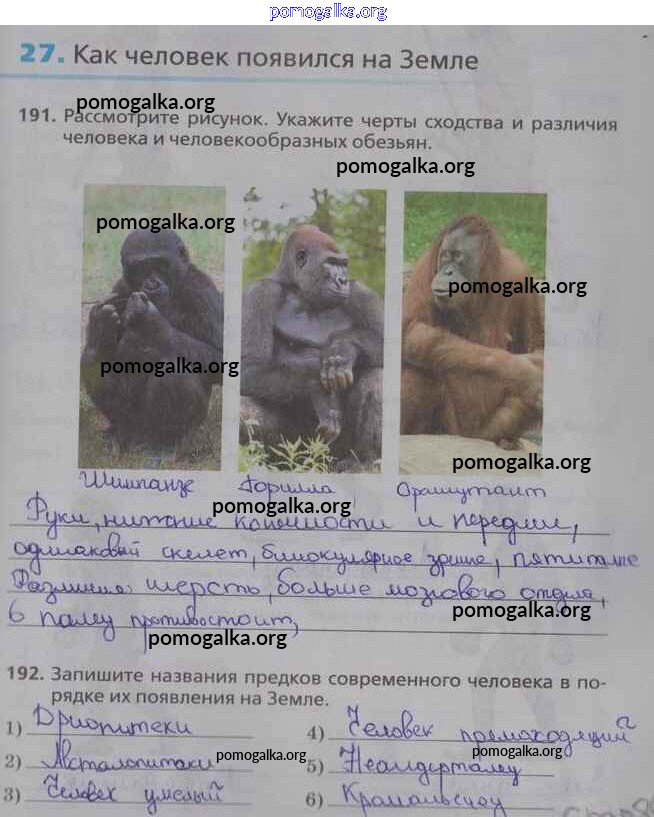 pomogalka.org
27. Как человек появился на Земле
pomogalka.org
191. Рассмотрите рисунок. Укажите черты сходства и различия
человека и человекообразных обезьян.
pomogalka.org
pomogalka.org
pomogalka.org
pomogalka.org
pomogalka.org
Шимпанзе Горилла Орангутанг
pomogalka.org
Руки, нижние конечности и передние,
одинаковый скелет, бинокулярное зрение, пятипалые
Различия: шерсть, больше мозгового отдела,
pomogalka.org
6 палец противостоит,
pomogalka.org
192. Запишите названия предков современного человека в по-
рядке их появления на Земле.
1) Дриопитеки
4) Человек прямоходящий
2) Австралопитеки
pomogalka.org
5) Неандерталец
pomogalka.org
3) Человек умелый
6) Кроманьонец